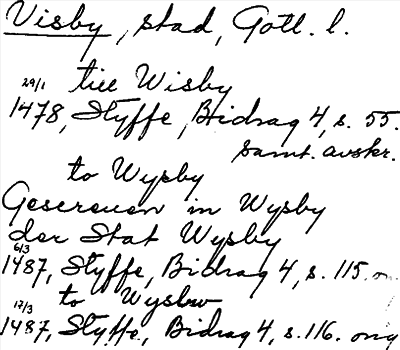 Visby, stad, Gotl. l.
till Wisby
29/1
1478, Styffe, Bidrag 4, s. 55.
samt. avskr.
to Wysby
Gescreuen in Wysby
der Stat Wysby
6/3
1487, Styffe, Bidrag 4, s. 115.
to
17/3
1487, Styffe, Bidrag 4, s. 116.